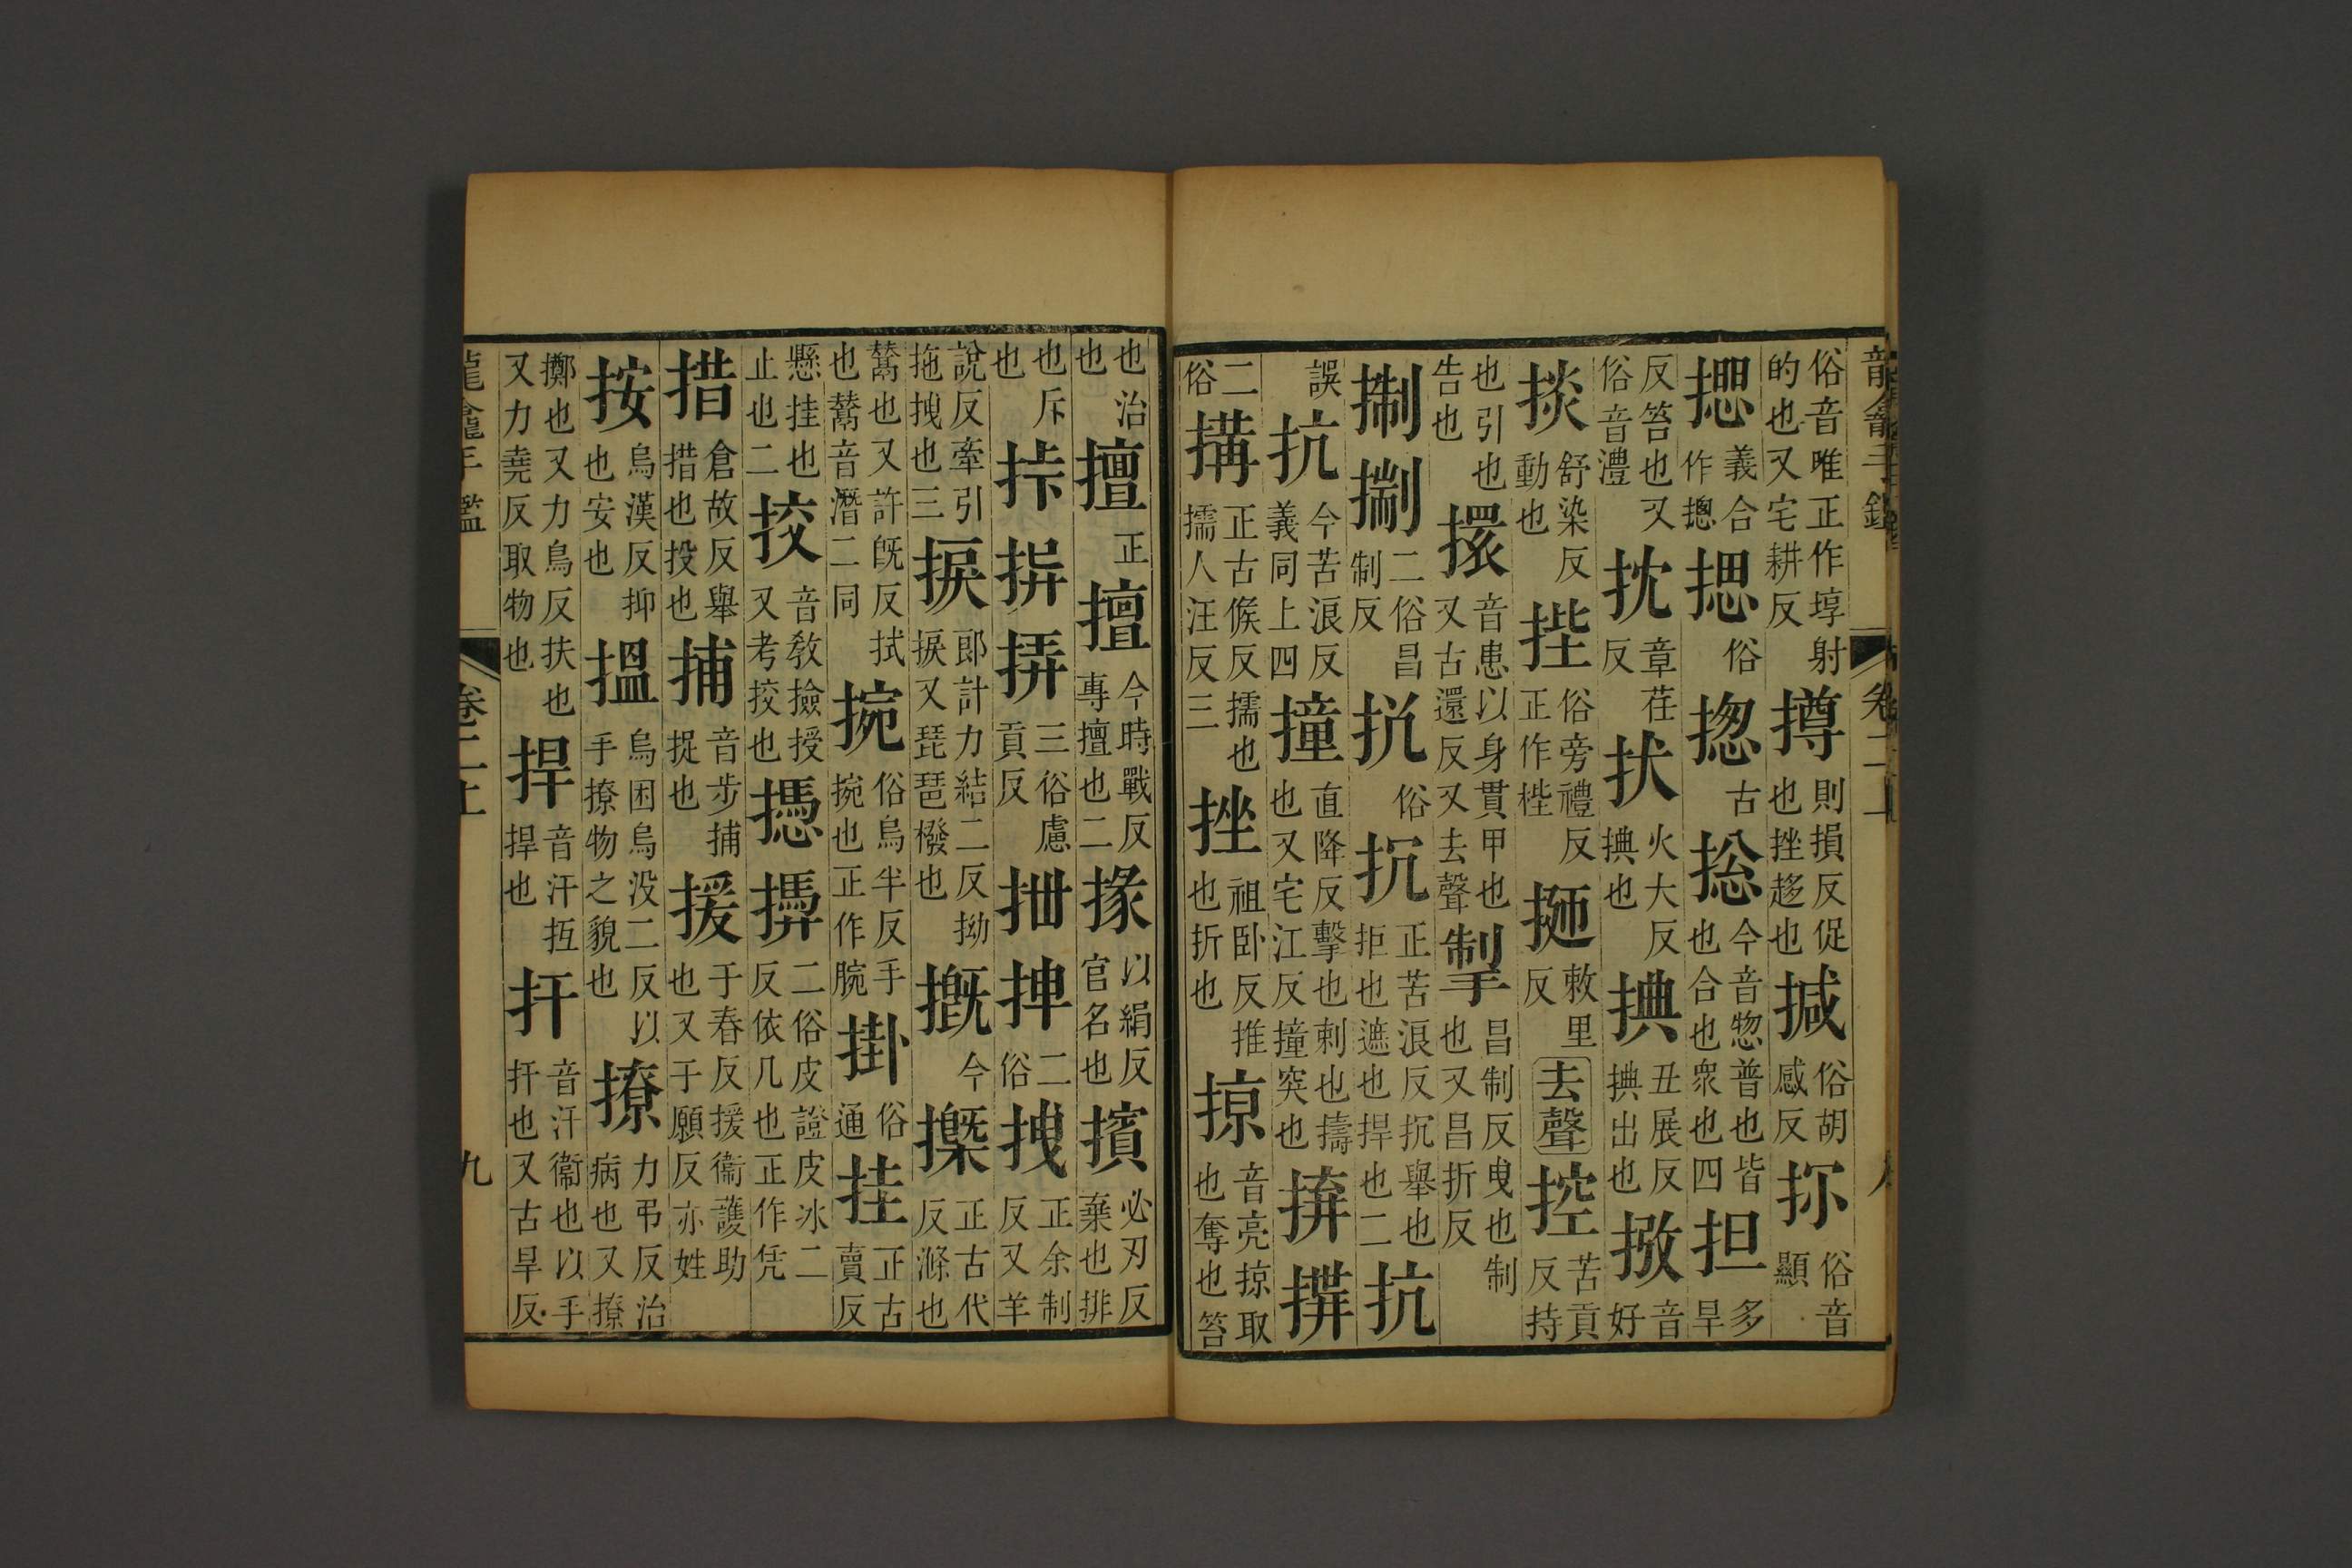 龍龕手鑑 卷二上
俗音唯正作埻射的也又宅耕反 撙 則損反促也挫趍也 揻 俗胡感反 㧗 俗音顯
摁 義合作摠 揌 俗 揔 古 捴 今音惣普也皆也合也衆也四 担 多旱
反笞也又俗音澧 抌 章荏反 㧋 火大反㨏也 㨏 丑展反㨏出也 㧱 音好
掞 舒染反動也 㨒 俗旁禮反正作梐 㧱 敕里反 去聲 控 苦貢反持
也引也告也 擐 音患以身貫甲也又古還反又去聲 掣 昌制反曳也制也又昌折反
㨖 㨫 二俗昌制反 挩 俗 抗 正苦浪反抗舉也拒也遮也捍也二 抗
誤 抗 今苦浪反義同上四 撞 直降反擊也刺也擣也又宅江反撞突也 拚 㩯
二俗 搆 正古候反擩也擩人汪反三 挫 祖卧反推也折也 掠 音亮掠取也奪也笞
也治也 擅 正 擅 今時戰反專擅也二 掾 以絹反官名也 擯 必刃反棄也排
也斥也 挊 㧯 挵 三俗盧貢反 抴 抻 二俗 拽 正余制反又羊
說反牽引拖拽也三 捩 郎計力結二反拗捩又琵琶橃也 摡 今 㮣 正古代反滌也
鬵也又許旣反拭也鬵音潛二同 捥 俗烏半反手捥也正作腕 掛 俗通 挂 正古賣反
懸挂也止也二 挍 音敎撿授又考挍也 㩁 㩯 二俗皮證皮冰二反依几也正作凭
措 倉故反舉措也投也 捕 音步捕捉也 援 于春反援衞護助也又于願反亦姓
按 烏漢反抑也安也 搵 烏困烏没二反以手撩物之貌也 撩 力弔反治病也又撩
擲也又力鳥反扶也又力堯反取物也 捍 音汗㧴捍也 扞 音汗衞也以手扞也又古旱反
龍龕手鑑 卷二上 九